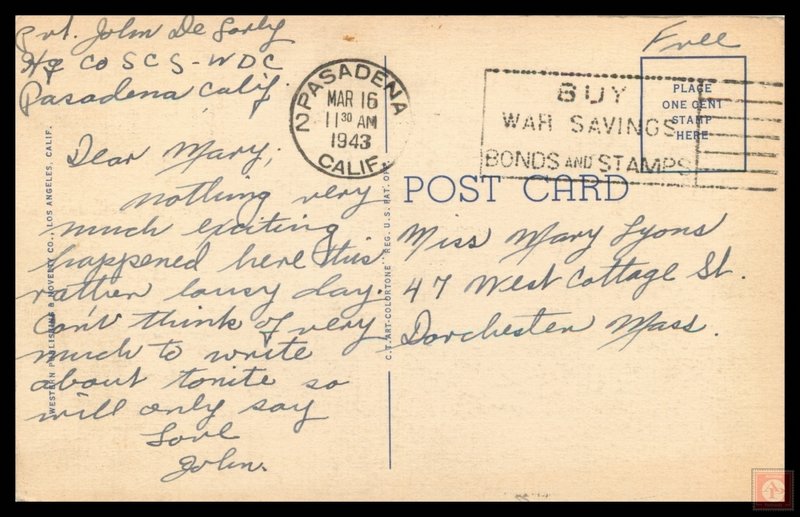 Pvt. John De Sorly
Hq Co SCS-WDC
Pasadena Calif.
Free
PASADENA
2
MAR 16
11 30 AM
1943
CALIF.
BUY
WAR SAVINGS
BONDS AND STAMPS
PLACE
ONE CENT
STAMP
HERE
Dear Mary;
nothing very
much exciting
happened here this
rather lousy day.
Can't think of very
much to write
about tonite so
will only say
Love
John.
POST CARD
Miss Mary Lyons
47 West Cottage St.
Dorchester Mass.
WESTERN PUBLISHING & NOVELTY CO., LOS ANGELES, CALIF.
C.T. ART-COLORTONE REG. U.S. PAT. OFF.